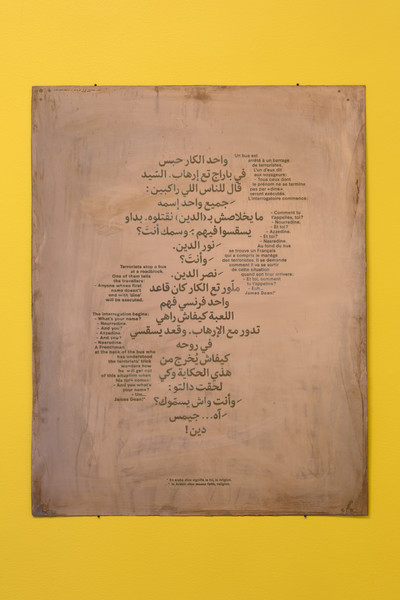 واحد الكار حبس
في باراج تع إرهاب. السّيد
قال للناس اللي راكبين:
ـ جميع واحد إسمه
ما يخلاصش بـ (الدين) نقتلوه. بداو
يسقسوا فيهم: وسمك أنتَ؟
ـ نور الدين.
ـ وأنتَ؟
ـ نصر الدين.
تع الكار كان قاعد
واحد فرنسي فهم
اللعبة كيفاش راهي
تدور مع الإرهاب، وقعد يسقسي
في روحه
كيفاش يُخرج من
هذي الحكاية وكي
لحقت دالتو:
ـ وأنت واش يسمّوك؟
ـ آه... جيمس
دين!
Un bus est
arrêté à un barrage
de terroristes.
L'un d'eux dit
aux voyageurs:
- Tous ceux dont
le prénom ne se termine
pas par «dine»
seront exécutés.
L'interrogatoire commence:
- Comment tu
t'appelles, toi?
- Nourredine.
- Et toi?
- Azzedine.
- Et toi?
- Nasredine.
Au fond du bus
se trouve un Français
qui a compris le manège
des terroristes, il se demande
comment il va se sortir
de cette situation
quand son tour arrive:
- Et toi, comment
tu t'appelles?
- Euh...
James Dean*
Terrorists stop a bus
at a roadblock.
One of them tells
the travellers:
Anyone whose first
name doesn't
end with 'dine'
will be executed.
The interrogation begins:
- What's your name?
- Nourredine.
- And you?
- Azzedine.
- And you?
- Nasredine.
A Frenchman
at the back of the bus who
has understood
the terrorists' trick
wonders how
he will get out
of this situation when
his turn comes:
- And you what's
your name?
- Um...
James Dean*
* En arabe dîne signifie la foi, la religion.
* In Arabic dîne means faith, religion.